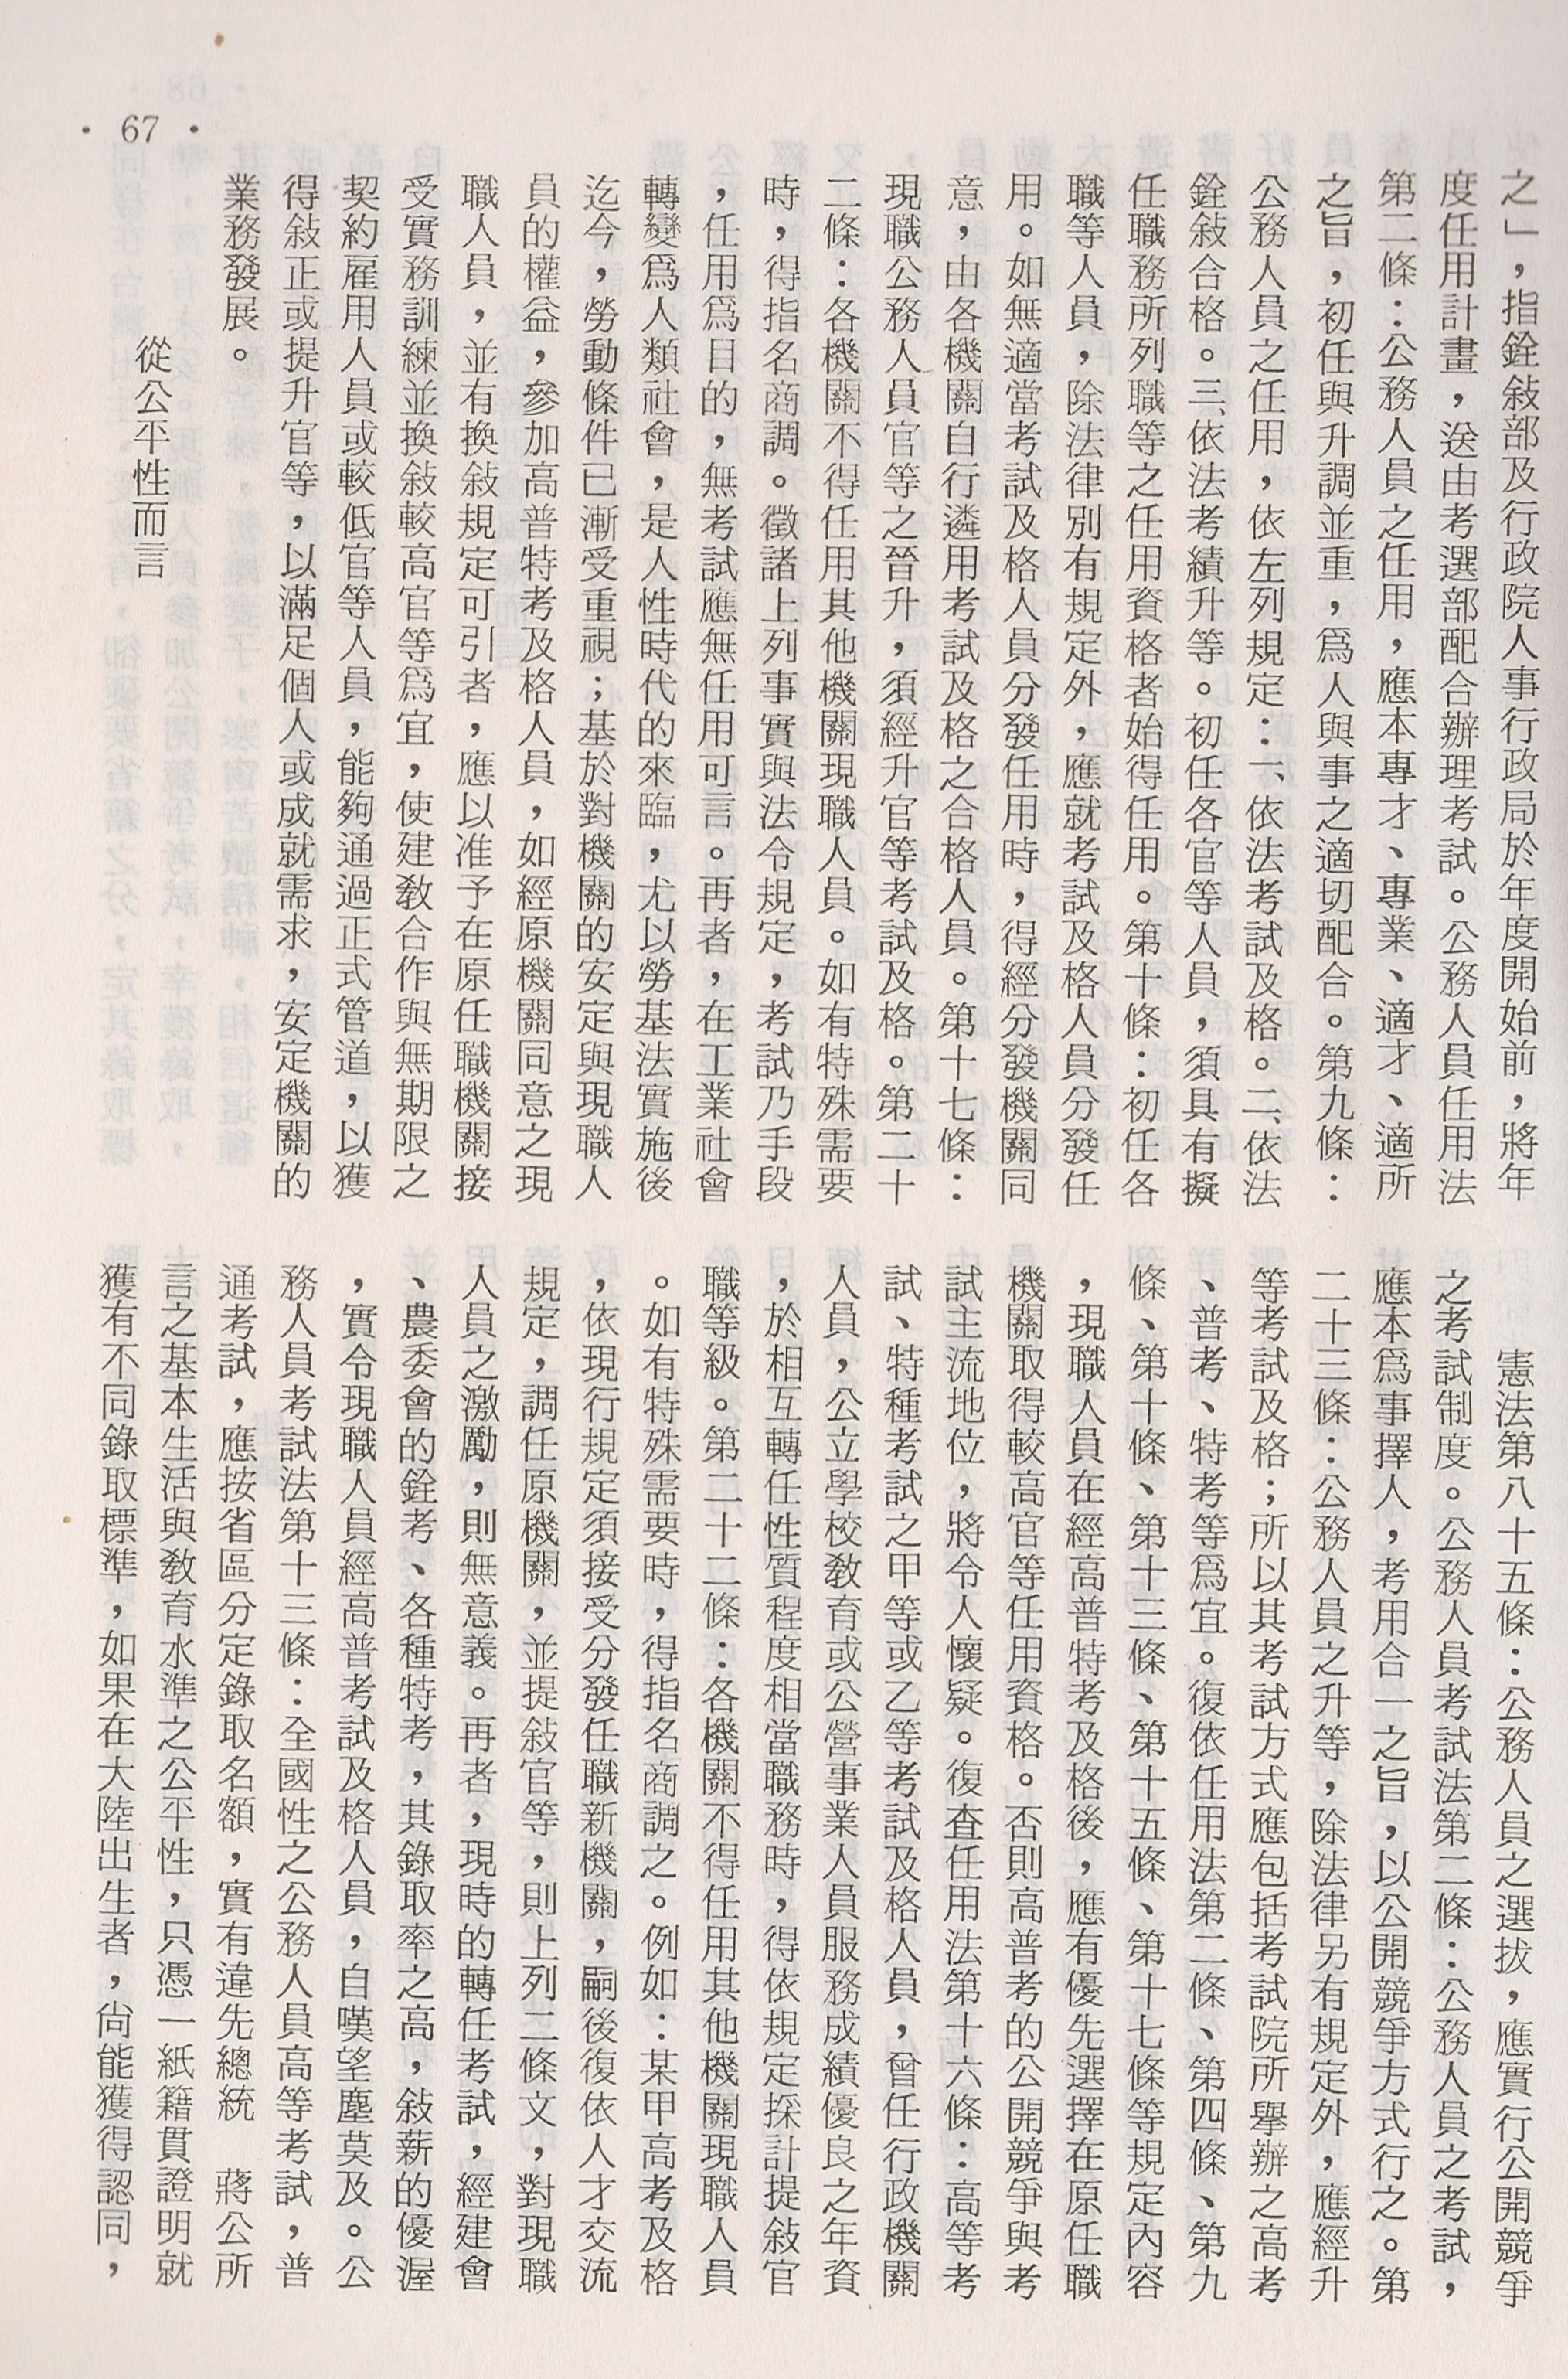 之」，指銓敍部及行政院人事行政局於年度開始前，將年
度任用計畫，送由考選部配合辦理考試。公務人員任用法
第二條：公務人員之任用，應本專才、專業、適才、適所
之旨，初任與升調並重，爲人與事之適切配合。第九條：
公務人員之任用，依左列規定：一、依法考試及格。二、依法
銓敍合格。三、依法考績升等。初任各官等人員，須具有擬
任職務所列職等之任用資格者始得任用。第十條：初任各
職等人員，除法律別有規定外，應就考試及格人員分發任
用。如無適當考試及格人員分發任用時，得經分發機關同
意，由各機關自行遴用考試及格之合格人員。第十七條：
現職公務人員官等之晉升，須經升官等考試及格。第二十
二條：各機關不得任用其他機關現職人員。如有特殊需要
時，得指名商調。徵諸上列事實與法令規定，考試乃手段
，任用爲目的，無考試應無任用可言。再者，在工業社會
轉變爲人類社會，是人性時代的來臨，尤以勞基法實施後
迄今，勞動條件已漸受重視；基於對機關的安定與現職人
員的權益，參加高普特考及格人員，如經原機關同意之現
職人員，並有換敍規定可引者，應以准予在原任職機關接
受實務訓練並換敍較高官等爲宜，使建教合作與無期限之
契約雇用人員或較低官等人員，能夠通過正式管道，以獲
得敍正或提升官等，以滿足個人或成就需求，安定機關的
業務發展。
從公平性而言
憲法第八十五條：公務人員之選拔，應實行公開競爭
之考試制度。公務人員考試法第二條：公務人員之考試，
應本爲事擇人，考用合一之旨，以公開競爭方式行之。第
二十三條：公務人員之升等，除法律另有規定外，應經升
等考試及格；所以其考試方式應包括考試院所舉辦之高考
、普考、特考等爲宜。復依任用法第二條、第四條、第九
條、第十條、第十三條、第十五條、第十七條等規定內容
，現職人員在經高普特考及格後，應有優先選擇在原任職
機關取得較高官等任用資格。否則高普考的公開競爭與考
試主流地位，將令人懷疑。復查任用法第十六條：高等考
試、特種考試之甲等或乙等考試及格人員，曾任行政機關
人員，公立學校教育或公營事業人員服務成績優良之年資
，於相互轉任性質程度相當職務時，得依規定採計提敍官
職等級。第二十二條：各機關不得任用其他機關現職人員
。如有特殊需要時，得指名商調之。例如：某甲高考及格
，依現行規定須接受分發任職新機關，嗣後復依人才交流
規定，調任原機關，並提敍官等，則上列二條文，對現職
人員之激勵，則無意義。再者，現時的轉任考試，經建會
、農委會的銓考、各種特考，其錄取率之高，敍薪的優渥
，實令現職人員經高普考試及格人員，自嘆望塵莫及。公
務人員考試法第十三條：全國性之公務人員高等考試，普
通考試，應按省區分定錄取名額，實有違先總統　蔣公所
言之基本生活與教育水準之公平性，只憑一紙籍貫證明就
獲有不同錄取標準，如果在大陸出生者，尙能獲得認同，
• 67 •